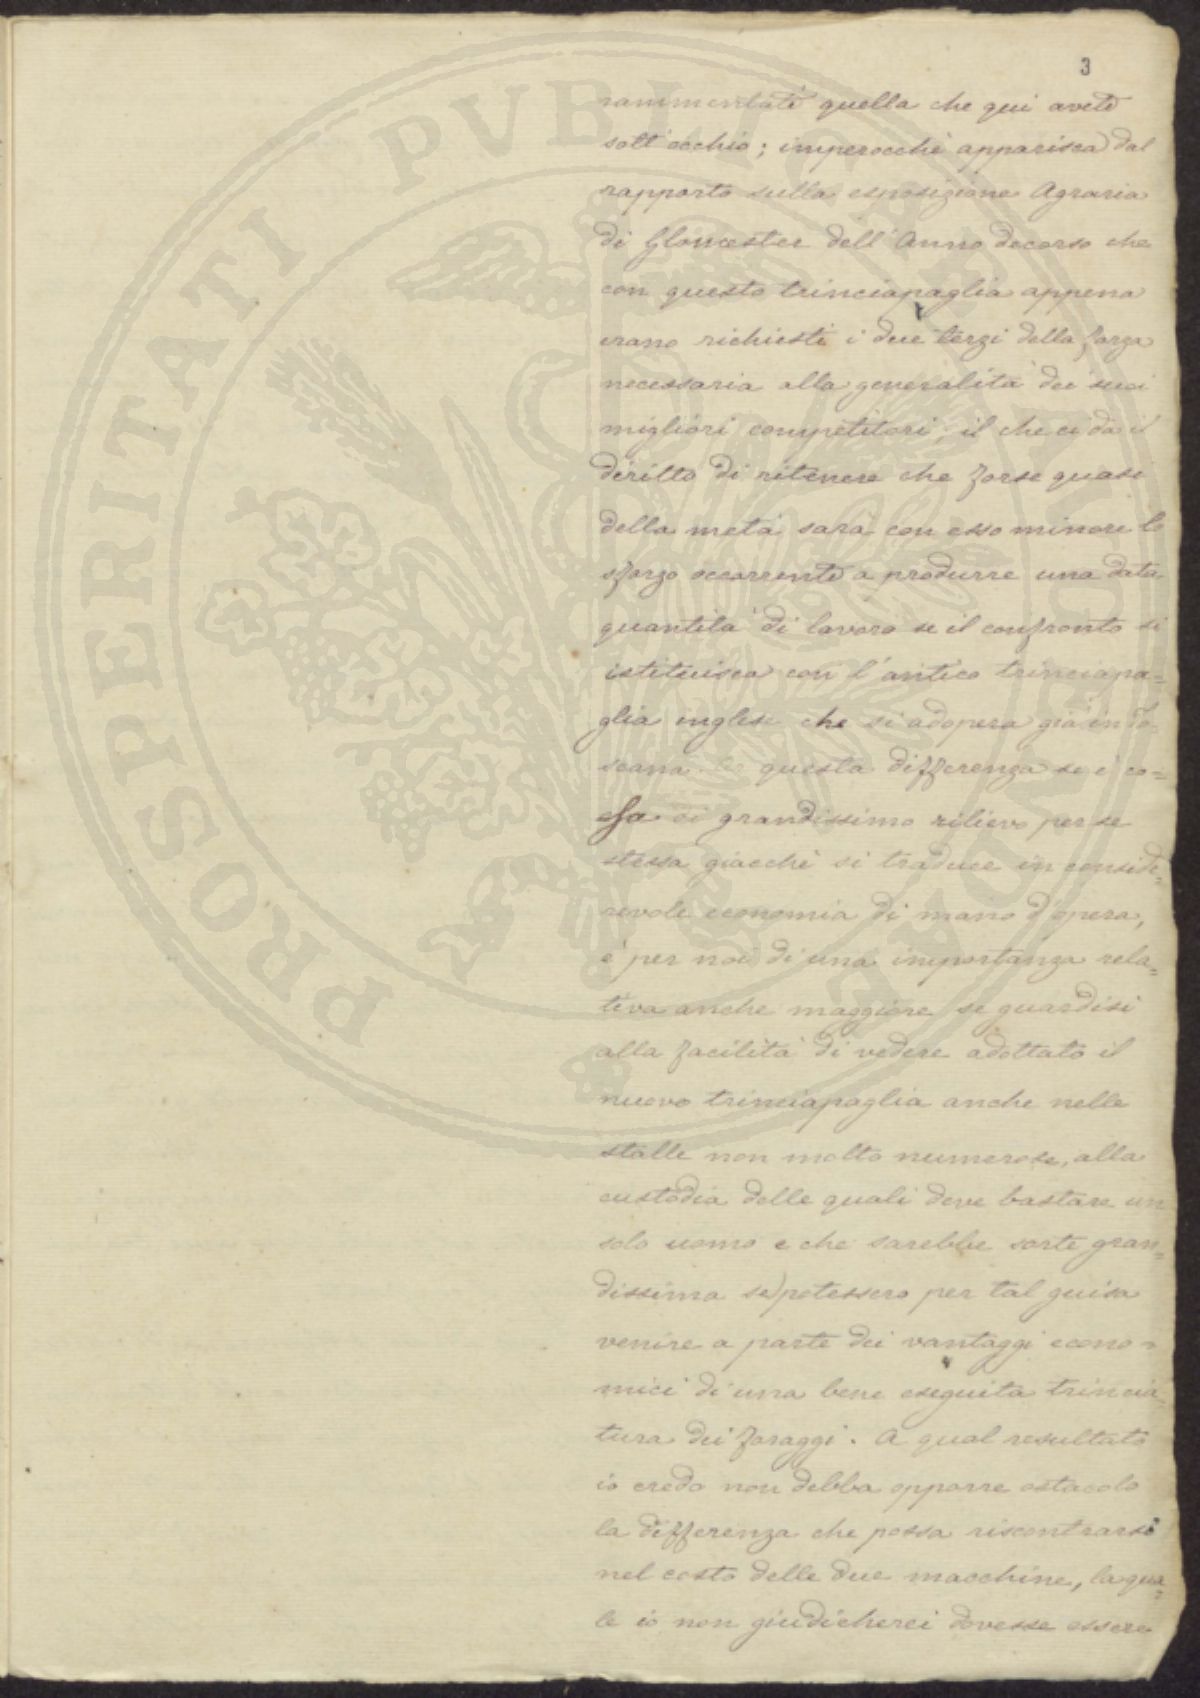 3
rammentate quella che qui avete
sott'occhio; imperocchè apparisca dal
rapporto sulla esposizione Agraria
di Gloucester dell'Anno decorso che
con questo trinciapaglia appena
erano richiesti i due terzi della forza
necessaria alla generalità dei suoi
migliori competitori, il che ci dà il
diritto di ritenere che forse quasi
della metà sarà con esso minore lo
sforzo occorrente a produrre una data
quantità di lavoro se il confronto si
istituisca con l'antico trinciapa=
glia inglese che si adopera già in To-
scana. questa differenza se è co=
sa di grandissimo rilievo per se
stessa giacchè si traduce in conside=
revole economia di mano d'opera,
è per noi di una importanza rela=
tiva anche maggiore se guardisi
alla facilità di vedere adottato il
nuovo trinciapaglia anche nelle
stalle non molto numerose, alla
custodia delle quali deve bastare un
solo uomo e che sarebbe sorte gran=
dissima se potessero per tal guisa
venire a parte dei vantaggi econo=
mici di una bene eseguita trincia
tura dei foraggi. A qual resultato
io credo non debba opporre ostacolo
la differenza che possa riscontrarsi
nel costo delle due macchine, la qua=
le io non giudicherei dovesse essere
PROSPERITATI PVBLICAE AVGENDAE